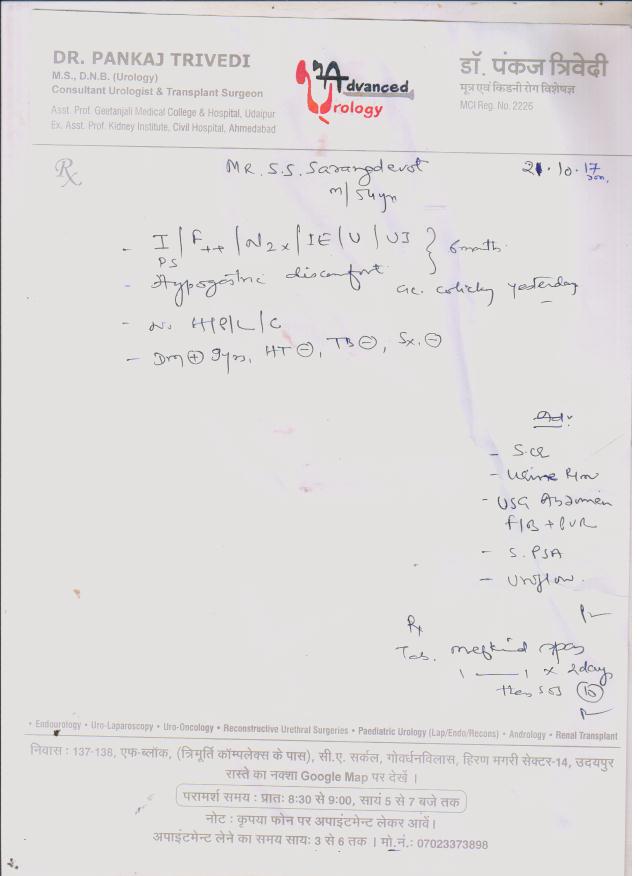 DR. PANKAJ TRIVEDI
M.S., D.N.B. (Urology)
Consultant Urologist & Transplant Surgeon
Asst. Prof. Geetanjali Medical College & Hospital, Udaipur
Ex. Asst. Prof. Kidney Institute, Civil Hospital, Ahmedabad
Advanced
Urology
डॉ. पंकज त्रिवेदी
मूत्र एवं किडनी रोग विशेषज्ञ
MCI Reg. No. 2226
Rx
Mr. S.S. Sarangdevot
21.10.17
m/54yrs
- I/F++/N2x/IE/U/UI } 6 month
PS
- Hypogastric discomfort
ac. colicky yesterday
- No H/P/L/C
- Dm ⊕ 9yrs, HT ⊖, TB ⊖, Sx. ⊖
Ad:
- S.CR
- Urine R/m
- USG Abdomen
f/B + PVR
- S. PSA
- Uroflow.
Rx
Tab. meftind spas
1 — 1 x 2days
then SOS (10)
• Endourology • Uro-Laparoscopy • Uro-Oncology • Reconstructive Urethral Surgeries • Paediatric Urology (Lap/Endo/Recons) • Andrology • Renal Transplant
निवास : 137-138, एफ-ब्लॉक, (त्रिमूर्ति कॉम्पलेक्स के पास), सी.ए. सर्कल, गोवर्धनविलास, हिरण मगरी सेक्टर-14, उदयपुर
रास्ते का नक्शा Google Map पर देखें ।
परामर्श समय : प्रातः 8:30 से 9:00, सायं 5 से 7 बजे तक
नोट : कृपया फोन पर अपाइंटमेन्ट लेकर आवें।
अपाइंटमेन्ट लेने का समय सायः 3 से 6 तक । मो.नं.: 07023373898